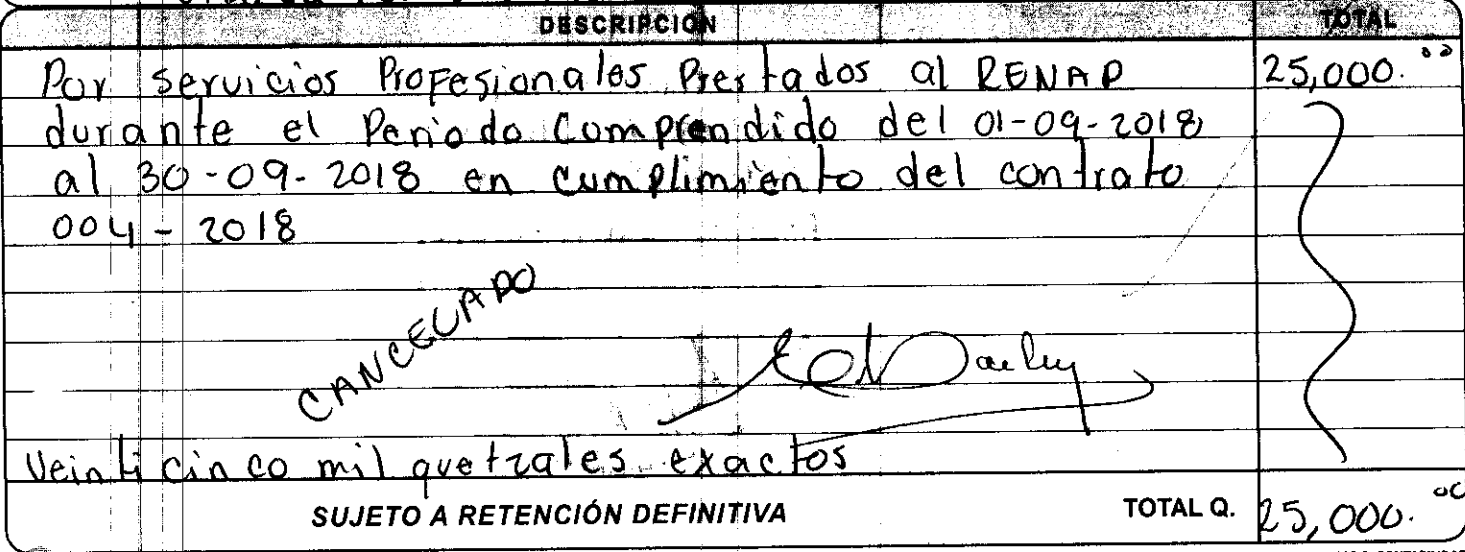 DESCRIPCIÓN TOTAL
Por servicios Profesionales Prestados al RENAP 25,000.00
durante el Periodo Comprendido del 01-09-2018
al 30-09-2018 en cumplimiento del contrato
004-2018
CANCELADO
Veinticinco mil quetzales exactos
SUJETO A RETENCIÓN DEFINITIVA TOTAL Q. 25,000.00